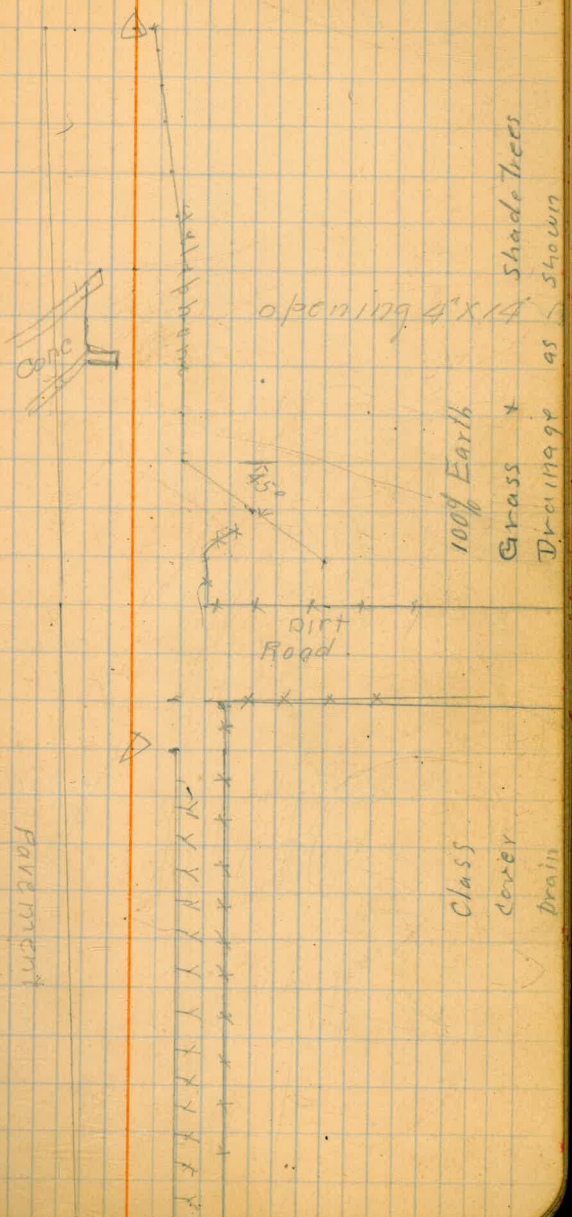 opening 4'x14'
Conc
Dirt
Road
Pavement
Class 100% Earth
Cover Grass + Shade Trees
Drain Drainage as shown